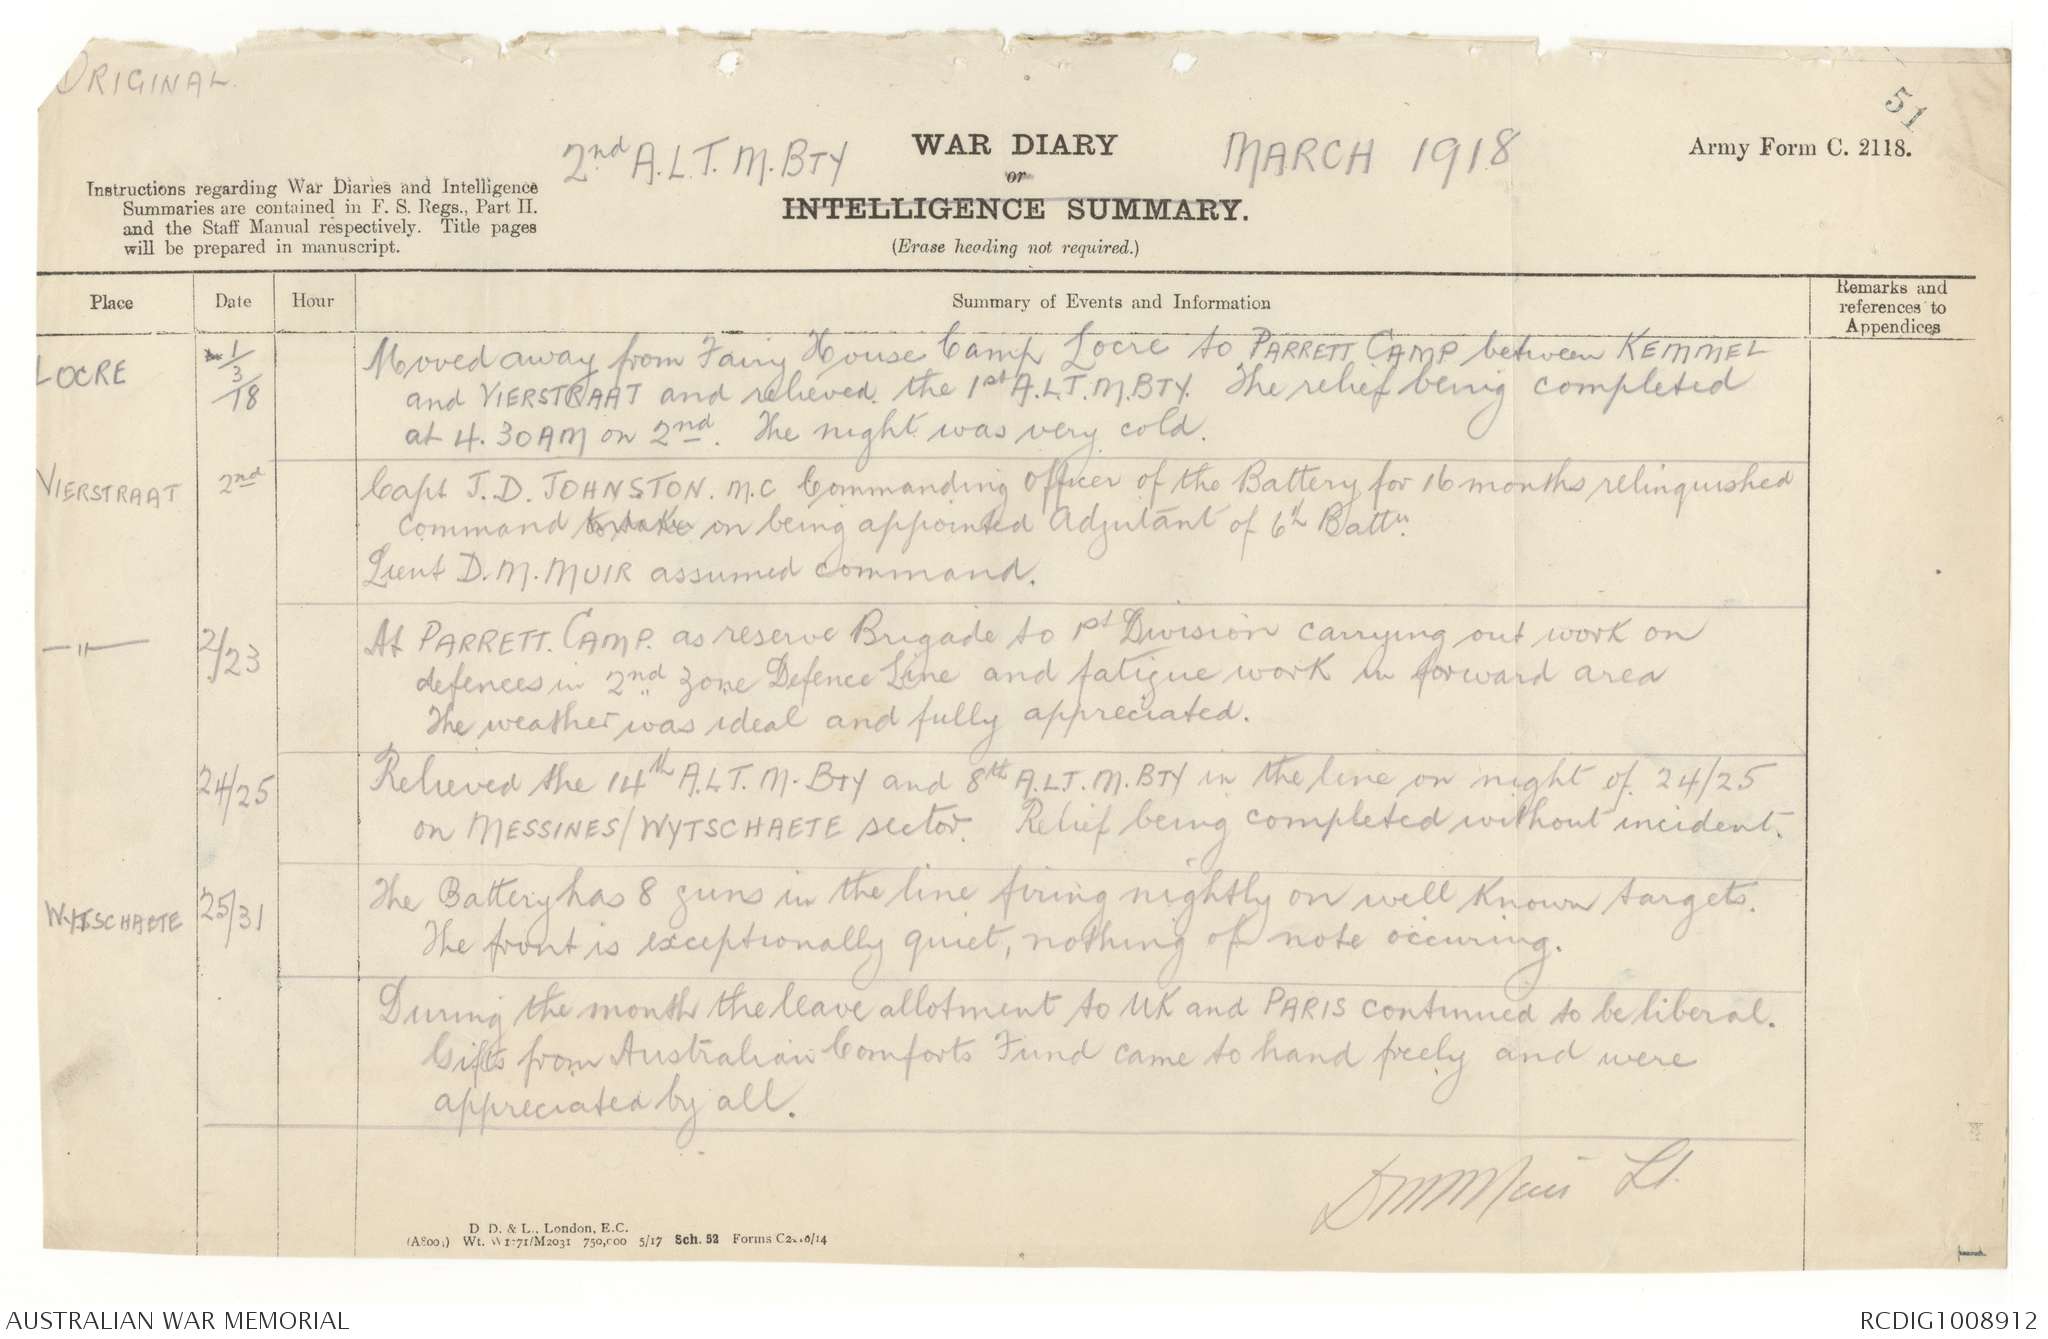 ORIGINAL.
51
2nd A.L.T.M.BTY
WAR DIARY
MARCH 1918
Army Form C. 2118.
or
INTELLIGENCE SUMMARY.
(Erase heading not required.)
Instructions regarding War Diaries and Intelligence
Summaries are contained in F. S. Regs., Part II.
and the Staff Manual respectively. Title pages
will be prepared in manuscript.
Place Date Hour Summary of Events and Information
Remarks and
references to
Appendices
LOCRE 1/3/18 Moved away from Fairy House Camp Locre to PARRETT CAMP between KEMMEL
and VIERSTRAAT and relieved the 1st A.L.T.M.BTY. The relief being completed
at 4.30AM on 2nd. The night was very cold.
VIERSTRAAT 2nd Capt J.D. JOHNSTON. M.C Commanding Officer of the Battery for 16 months relinquished
command to take on being appointed Adjutant of 6th Battn.
Lieut D.M. MUIR assumed command.
—"— 2/23 At PARRETT. CAMP. as reserve Brigade to 1st Division carrying out work on
defences in 2nd zone Defence Line and fatigue work in forward area
The weather was ideal and fully appreciated.
24/25 Relieved the 14th A.L.T.M.BTY and 8th A.L.T.M.BTY in the line on night of 24/25
on MESSINES/WYTSCHAETE sector. Relief being completed without incident.
WYTSCHAETE 25/31 The Battery has 8 guns in the line firing nightly on well known targets.
The front is exceptionally quiet, nothing of note occuring.
During the month the leave allotment to UK and PARIS continued to be liberal.
Gifts from Australian Comforts Fund came to hand freely and were
appreciated by all.
DMMuir Lt.
D. D. & L., London, E.C.
Wt. W1771/M2031 750,000 5/17 Sch. 52 Forms C2118/14
AUSTRALIAN WAR MEMORIAL
RCDIG1008912